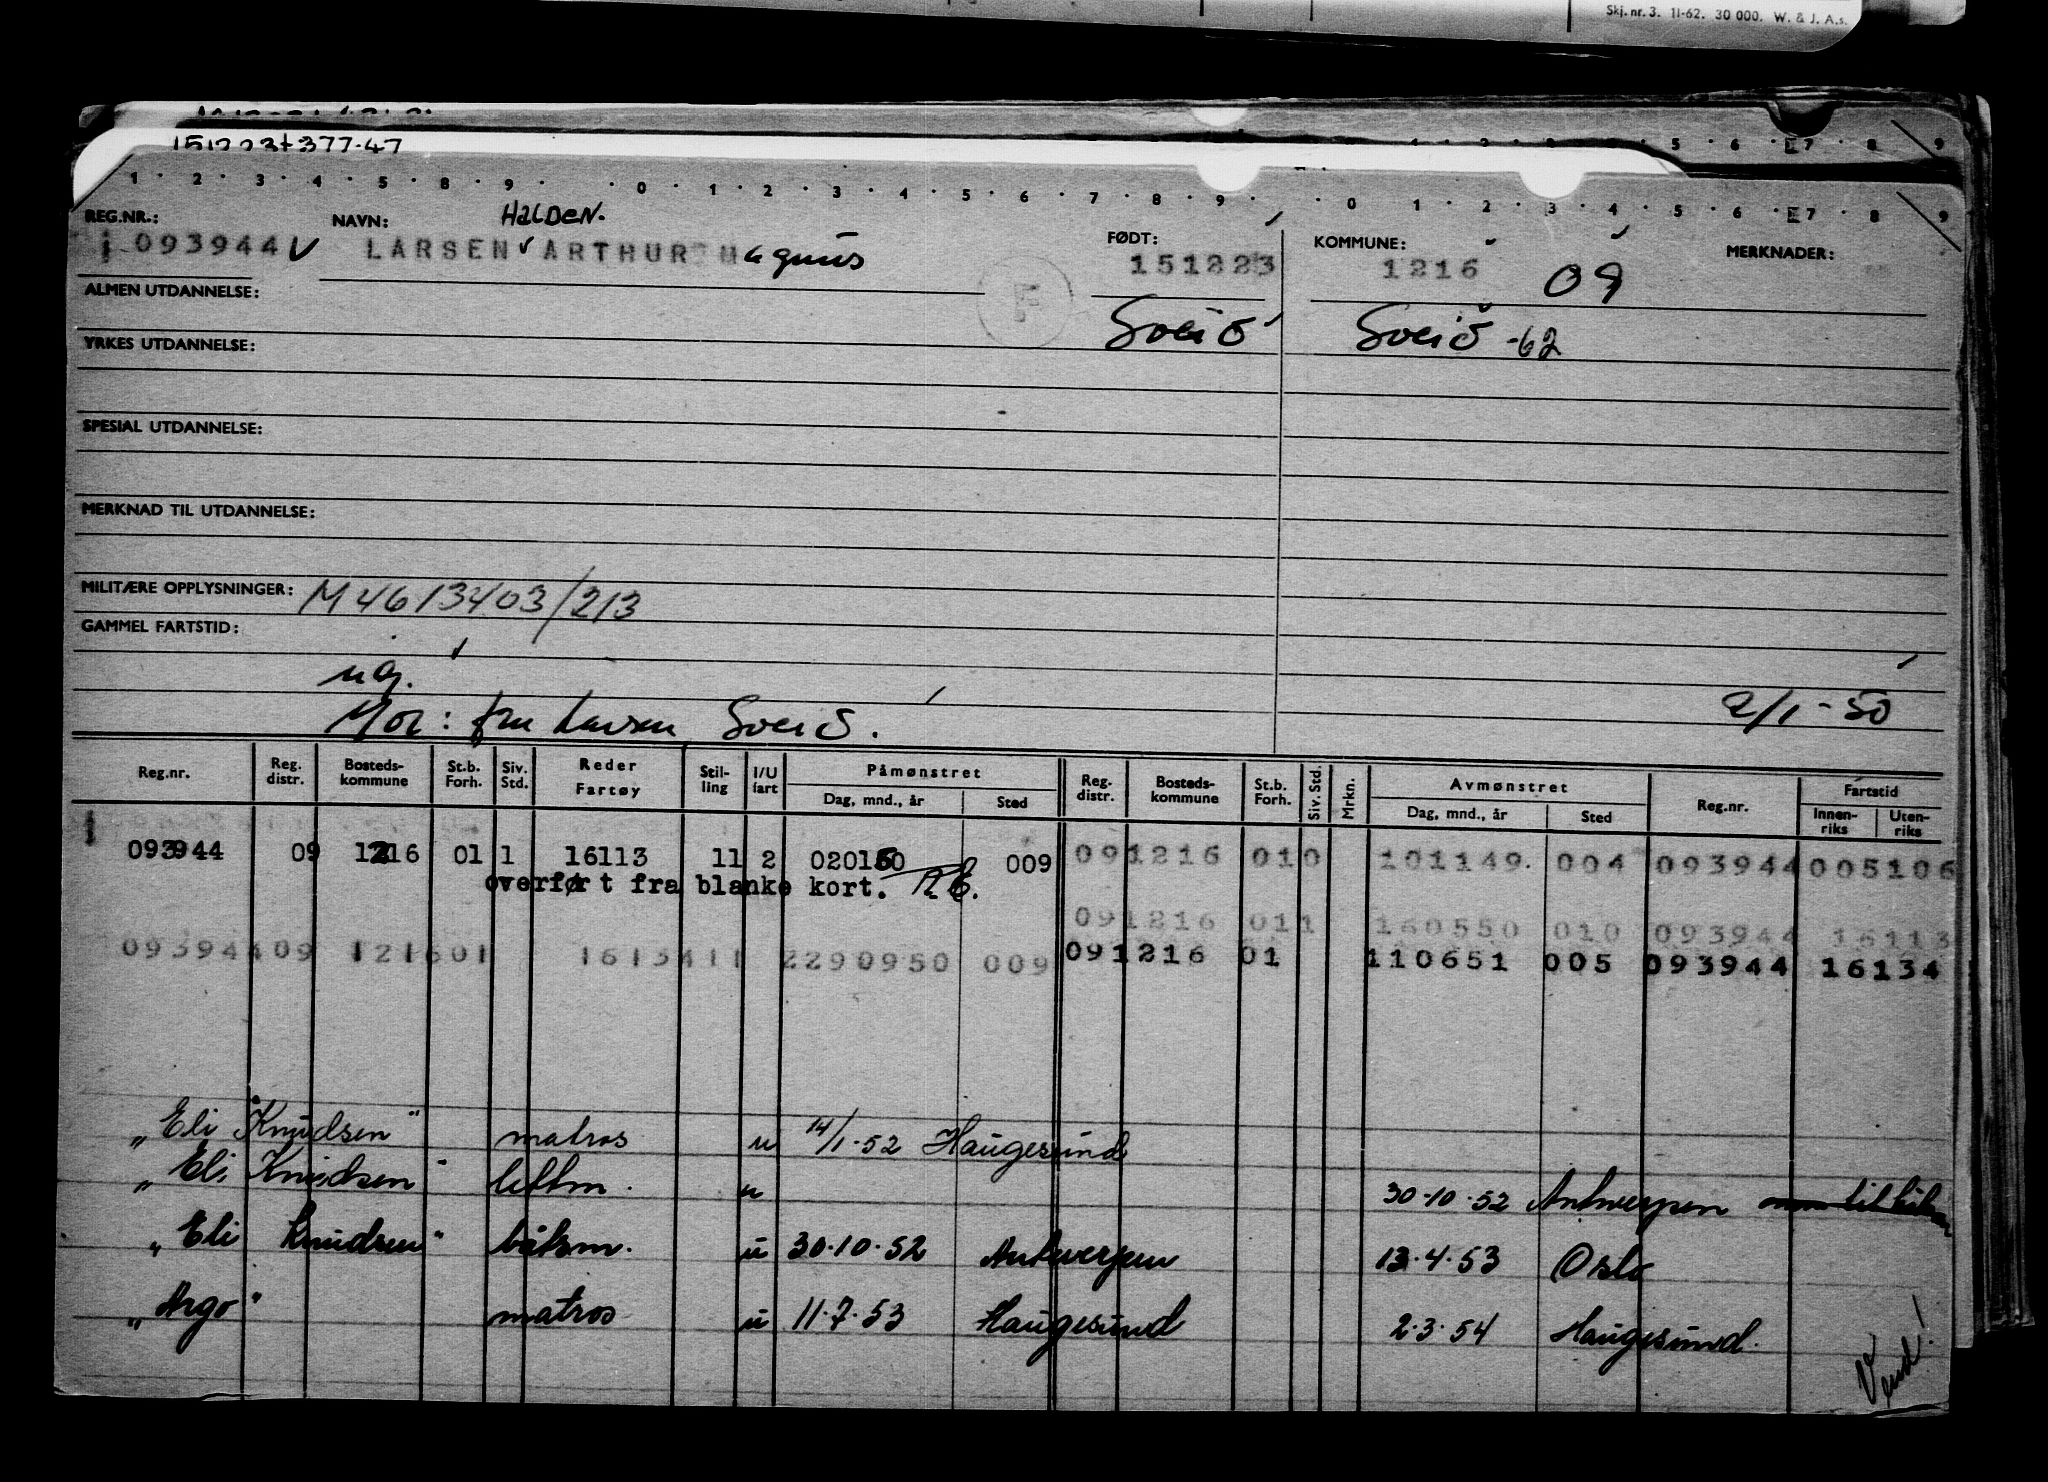 Skj. nr. 3. 11-62. 30 000. W. & J. A.s.
151223+377.47
1 2 3 4 5 8 9 0 1 2 3 4 5 6 7 8 9 0 1 2 3 4 5 6 7 8 9
REG.NR.: NAVN: HALDEN. FØDT: KOMMUNE: MERKNADER:
093944 LARSEN ARTHUR Magnus 151223 1216 09
F
ALMEN UTDANNELSE: Sveiö Sveiö -62
YRKES UTDANNELSE:
SPESIAL UTDANNELSE:
MERKNAD TIL UTDANNELSE:
MILITÆRE OPPLYSNINGER: M 4613403/213
GAMMEL FARTSTID:
ug.
Mor: fru Larsen Sveiö. 2/1-50
Reg.nr. Reg. distr. Bosteds-kommune St.b. Forh. Siv. Std. Reder Fartøy Stil-ling I/U fart Påmønstret Dag, mnd., år Sted Reg. distr. Bosteds-kommune St.b. Forh. Siv. Std. Mrkn. Avmønstret Dag, mnd., år Sted Reg.nr. Fartstid Innen-riks Uten-riks
093944 09 1216 01 1 16113 11 2 020150 009 091216 010 101149. 004 093944 005106
overført fra blanke kort.
091216 011 160550 010 093944 16113
093944 09 1216 01 16134 11 2 290950 009 091216 01 110651 005 093944 16134
"Eli Knudsen" matros u 14/1.52 Haugesund
"Eli Knudsen" lettm. u 30.10.52 Antwerpen
"Eli Knudsen" båtsm. u 30.10.52 Antwerpen 13.4.53 Oslo
"Argo" matros u 11.7.53 Haugesund 2.3.54 Haugesund.
Vend!